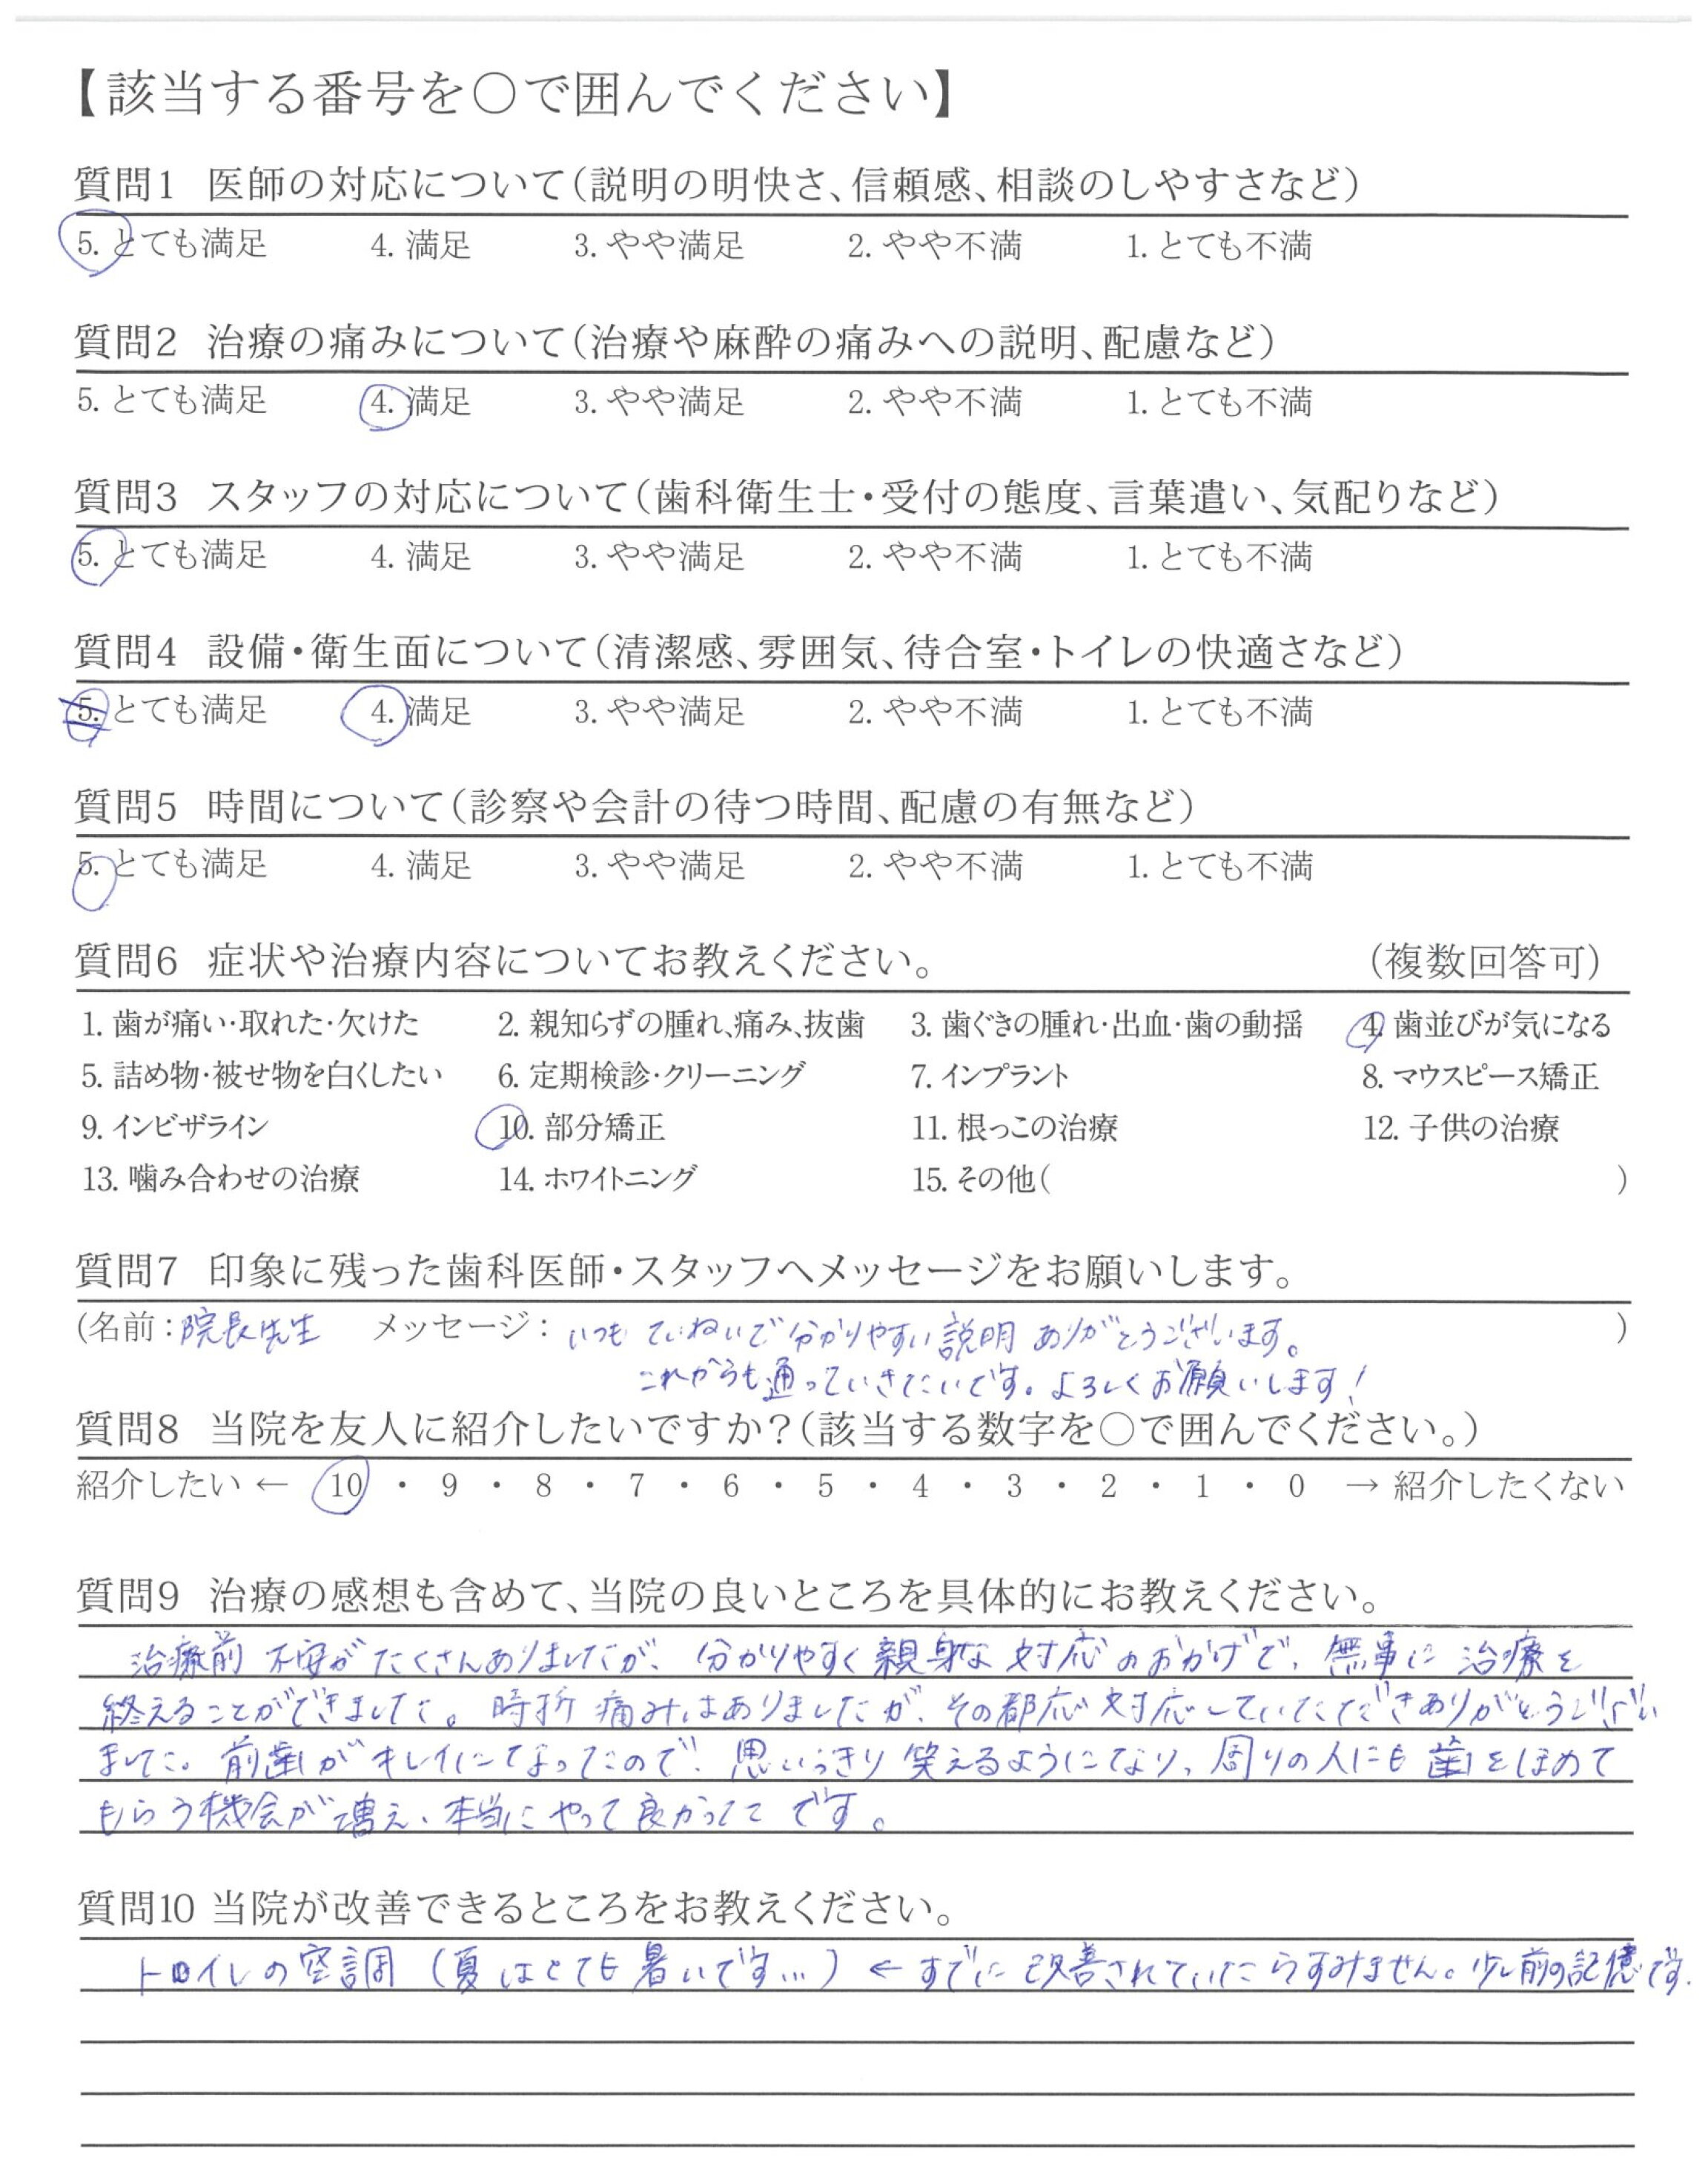 【該当する番号を○で囲んでください】
質問1 医師の対応について(説明の明快さ、信頼感、相談のしやすさなど)
5. とても満足 4. 満足 3. やや満足 2. やや不満 1. とても不満
質問2 治療の痛みについて(治療や麻酔の痛みへの説明、配慮など)
5. とても満足 4. 満足 3. やや満足 2. やや不満 1. とても不満
質問3 スタッフの対応について(歯科衛生士・受付の態度、言葉遣い、気配りなど)
5. とても満足 4. 満足 3. やや満足 2. やや不満 1. とても不満
質問4 設備・衛生面について(清潔感、雰囲気、待合室・トイレの快適さなど)
5. とても満足 4. 満足 3. やや満足 2. やや不満 1. とても不満
質問5 時間について(診察や会計の待つ時間、配慮の有無など)
5. とても満足 4. 満足 3. やや満足 2. やや不満 1. とても不満
質問6 症状や治療内容についてお教えください。 (複数回答可)
1. 歯が痛い・取れた・欠けた 2. 親知らずの腫れ、痛み、抜歯 3. 歯ぐきの腫れ・出血・歯の動揺 4. 歯並びが気になる
5. 詰め物・被せ物を白くしたい 6. 定期検診・クリーニング 7. インプラント 8. マウスピース矯正
9. インビザライン 10. 部分矯正 11. 根っこの治療 12. 子供の治療
13. 噛み合わせの治療 14. ホワイトニング 15. その他( )
質問7 印象に残った歯科医師・スタッフへメッセージをお願いします。
(名前:院長先生 メッセージ: いつも ていねいで分かりやすい説明 ありがとうございます。 )
これからも通っていきたいです。よろしくお願いします!
質問8 当院を友人に紹介したいですか?(該当する数字を○で囲んでください。)
紹介したい ← 10 ・ 9 ・ 8 ・ 7 ・ 6 ・ 5 ・ 4 ・ 3 ・ 2 ・ 1 ・ 0 → 紹介したくない
質問9 治療の感想も含めて、当院の良いところを具体的にお教えください。
治療前 不安がたくさんありましたが、分かりやすく親身な対応のおかげで、無事に治療を
終えることができました。時折 痛みはありましたが、その都応対応していただきありがとうござい
ました。前歯がキレイになったので、思いっきり笑えるようになり、周りの人にも歯をほめて
もらう機会が増え、本当にやって良かったです。
質問10 当院が改善できるところをお教えください。
トイレの空調 (夏はとても暑いです…) ← すでに改善されていたらすみません。少し前の記憶です.